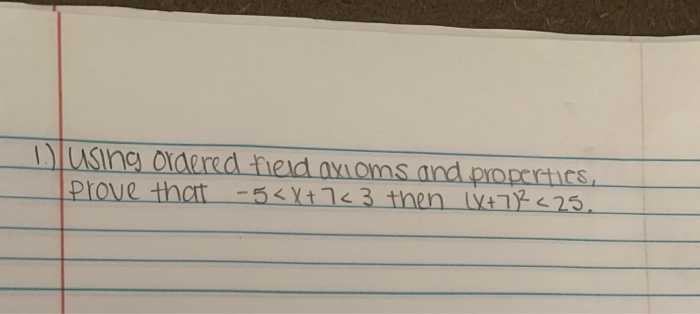 1.) Using ordered field axioms and properties,
prove that -5<x+7<3 then (x+7)²<25.